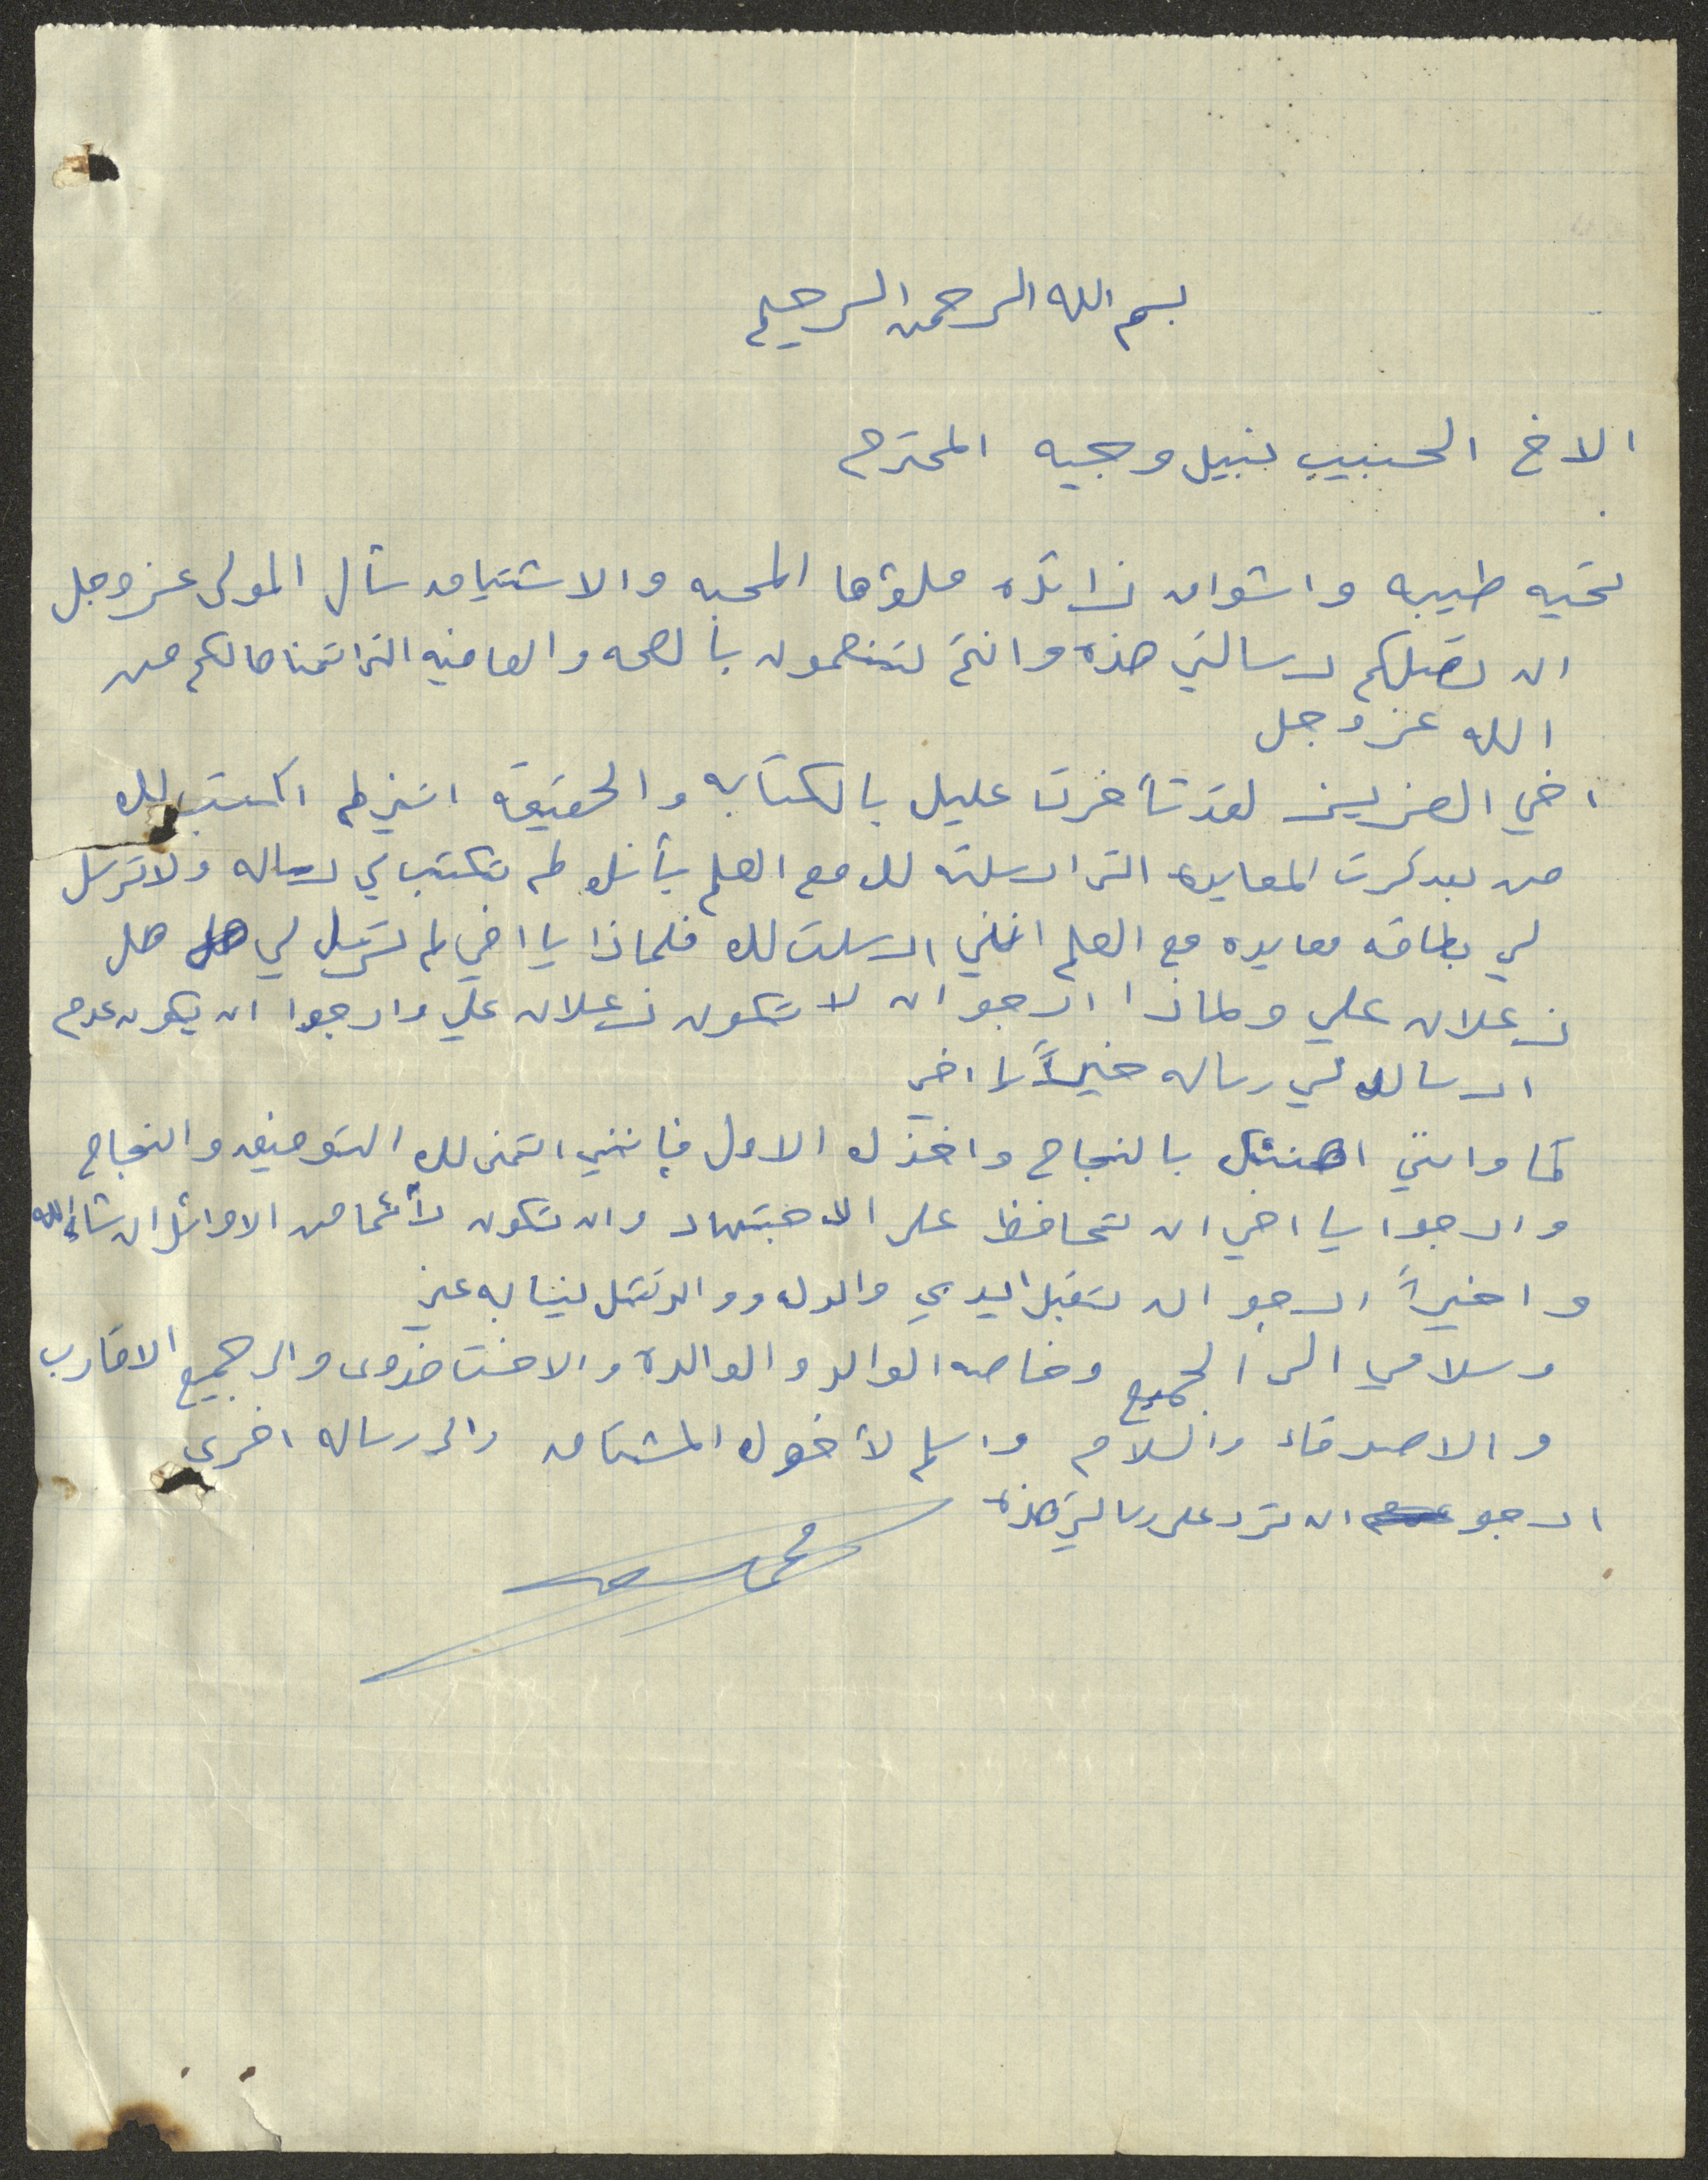 بسم الله الرحمن الرحيم
الاخ الحبيب نبيل وجيه المحترم
تحيه طيبه واشواق زائده ملؤها المحبه والاشتياق سأل المولى عز وجل
ان تصلكم رسالتي هذه وانتم تتنعمون بالصحه والعافيه التي اتمناها لكم من
الله عز وجل
اخي العزيز لقد تأخرت عليك بالكتابه والحقيقة انني لم اكتب لك
من بعد كرت المعايده التي ارسلته لك مع العلم بأنك لم تكتب لي رساله ولا ترسل
لي بطاقه معايده مع العلم انني ارسلت لك فلماذا يا اخي لم ترسل لي هل هل
زعلان علي ولماذا ارجو ان لا تكون زعلان علي وارجوا ان يكون عدم
ارسالك لي رساله خيراً يا اخي
كما وانني اهنئك بالنجاح واخذك الاول فإنني اتمنى لك التوفيق والنجاح
وارجوا يا اخي ان تحافظ على الاجتهاد وان تكون دائما من الاوائل ان شاء الله
واخيراً ارجو ان تقبل ايدي والدك ووالدتك نيابه عني
وسلامي الى الجميع وخاصه الوالد والوالدة والاخت فدوى والى جميع الاقارب
والاصدقاء والسلام واسلم لأخوك المشتاق والى رساله اخرى
ارجو ان ترد على رسالتي هذه
محمد